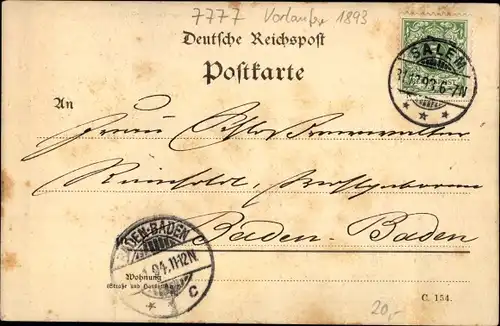 7777 Vorläufer 1893
Deutsche Reichspost
Postkarte
SALEM
31.12.93.6-7N
An
Herrn
Reinhold,
BADEN-BADEN
1.94.11-12N
C
Baden-Baden
Wohnung
(Straße und Hausnummer)
20,-
C. 154.